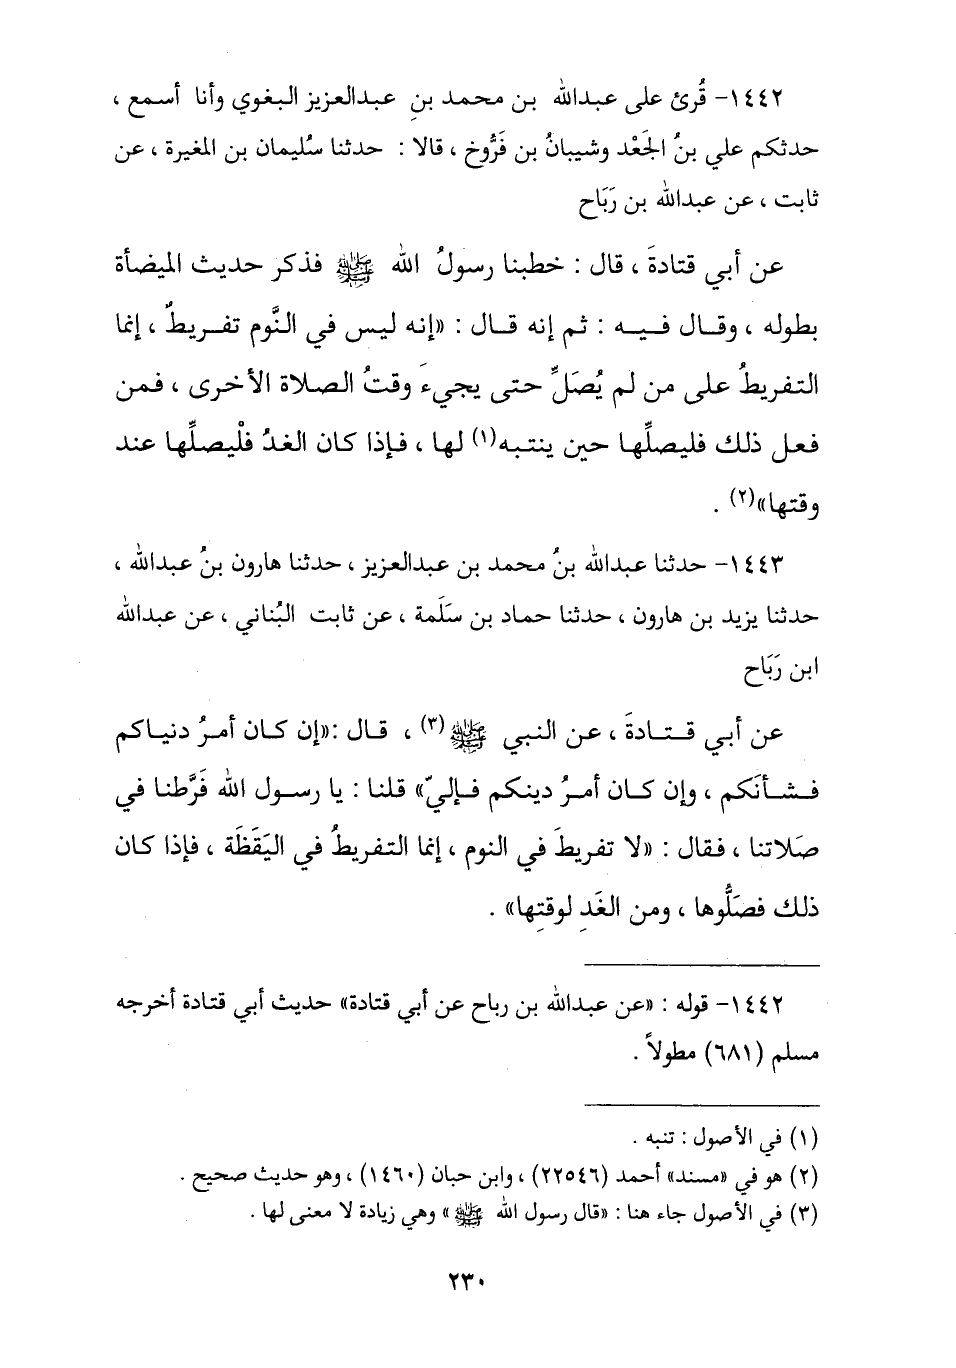 ١٤٤٢- قُرئ على عبدالله بن محمد بنِ عبدالعزيز البغوي وأنا أسمع ،
حدثكم علي بنُ الجَعْد وشيبانُ بن فَرُّوخ ، قالا : حدثنا سُليمان بن المغيرة ، عن
ثابت ، عن عبدالله بن رَبَاح
عن أبي قتادةَ ، قال : خطبنا رسولُ الله ﷺ فذكر حديث الميضأة
بطوله ، وقال فيه : ثم إنه قال : «إنه ليس في النَّوم تفريطٌ ، إنما
التفريطُ على من لم يُصَلِّ حتى يجيءَ وقتُ الصلاة الأخرى ، فمن
فعل ذلك فليصلِّها حين ينتبه(١) لها ، فإذا كان الغدُ فلْيصلِّها عند
وقتها»(٢) .
١٤٤٣- حدثنا عبدالله بنُ محمد بن عبدالعزيز ، حدثنا هارون بنُ عبدالله ،
حدثنا يزيد بن هارون ، حدثنا حماد بن سَلَمة ، عن ثابت البُناني ، عن عبدالله
ابن رَبَاح
عن أبي قتادةَ ، عن النبي ﷺ(٣) ، قال :«إن كان أمرُ دنياكم
فشأنَكم ، وإن كان أمرُ دينكم فإليّ» قلنا : يا رسول الله فَرَّطنا في
صَلاتنا ، فقال : «لا تفريطَ في النوم ، إنما التفريطُ في اليَقَظَة ، فإذا كان
ذلك فصَلُّوها ، ومن الغَدِ لوقتِها» .
١٤٤٢- قوله : «عن عبدالله بن رباح عن أبي قتادة» حديث أبي قتادة أخرجه
مسلم (٦٨١) مطولاً .
(١) في الأصول : تنبه .
(٢) هو في «مسند» أحمد (٢٢٥٤٦) ، وابن حبان (١٤٦٠) ، وهو حديث صحيح .
(٣) في الأصول جاء هنا : «قال رسول الله ﷺ» وهي زيادة لا معنى لها .
٢٣٠